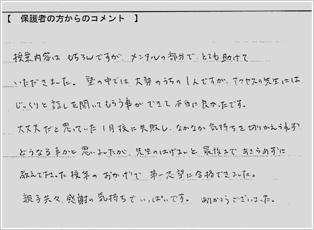 【 保護者の方からのコメント 】
授業内容はもちろんですが、メンタルの部分でとても助けて
いただきました。塾の中では大勢のうちの1人ですが、アクセスの先生には
じっくりと話しを聞いてもらう事ができて本当に良かったです。
大丈夫だと思っていた1月校に失敗し、なかなか気持ちを切りかえられず
どうなる事かと思いましたが、先生のはげましと最後まであきらめずに
教えて下さった授業のおかげで第一志望に合格できました。
親子共々、感謝の気持ちでいっぱいです。ありがとうございました。